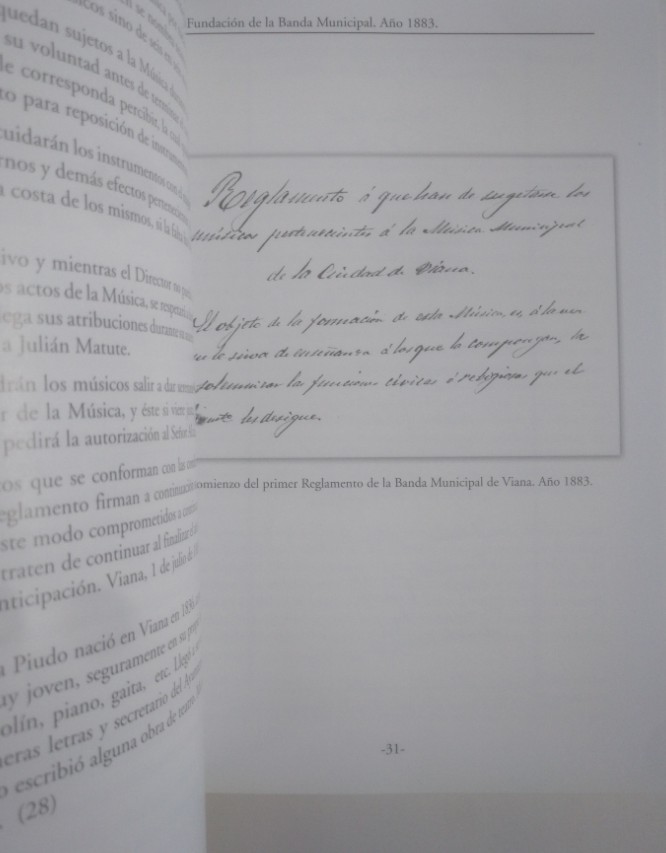 quedan sujetos a la Música
su voluntad antes de terminar
le corresponda percibir, la cual
to para reposición de instrumentos
cuidarán los instrumentos con el
rnos y demás efectos pertenecientes
a costa de los mismos, si la falta
ivo y mientras el Director no
os actos de la Música, se respetará
ega sus atribuciones durante su
a Julián Matute.
drán los músicos salir a dar
r de la Música, y éste si viere
pedirá la autorización al Señor
os que se conforman con las
eglamento firman a continuación
ste modo comprometidos a
traten de continuar al finalizar el
nticipación. Viana, 1 de julio de
a Piudo nació en Viana en 1836,
uy joven, seguramente en su
olín, piano, gaita, etc. Llegó a
neras letras y secretario del
o escribió alguna obra de teatro.
(28)
Fundación de la Banda Municipal. Año 1883.
Reglamento á que han de sugetarse los
músicos pertenecientes á la Música Municipal
de la Ciudad de Viana.
El objeto de la formación de esta Música, es, á la vez
que le sirva de enseñanza á los que la compongan, la
solemnizar las funciones civicas ó religiosas que el
les designe.
omienzo del primer Reglamento de la Banda Municipal de Viana. Año 1883.
-31-